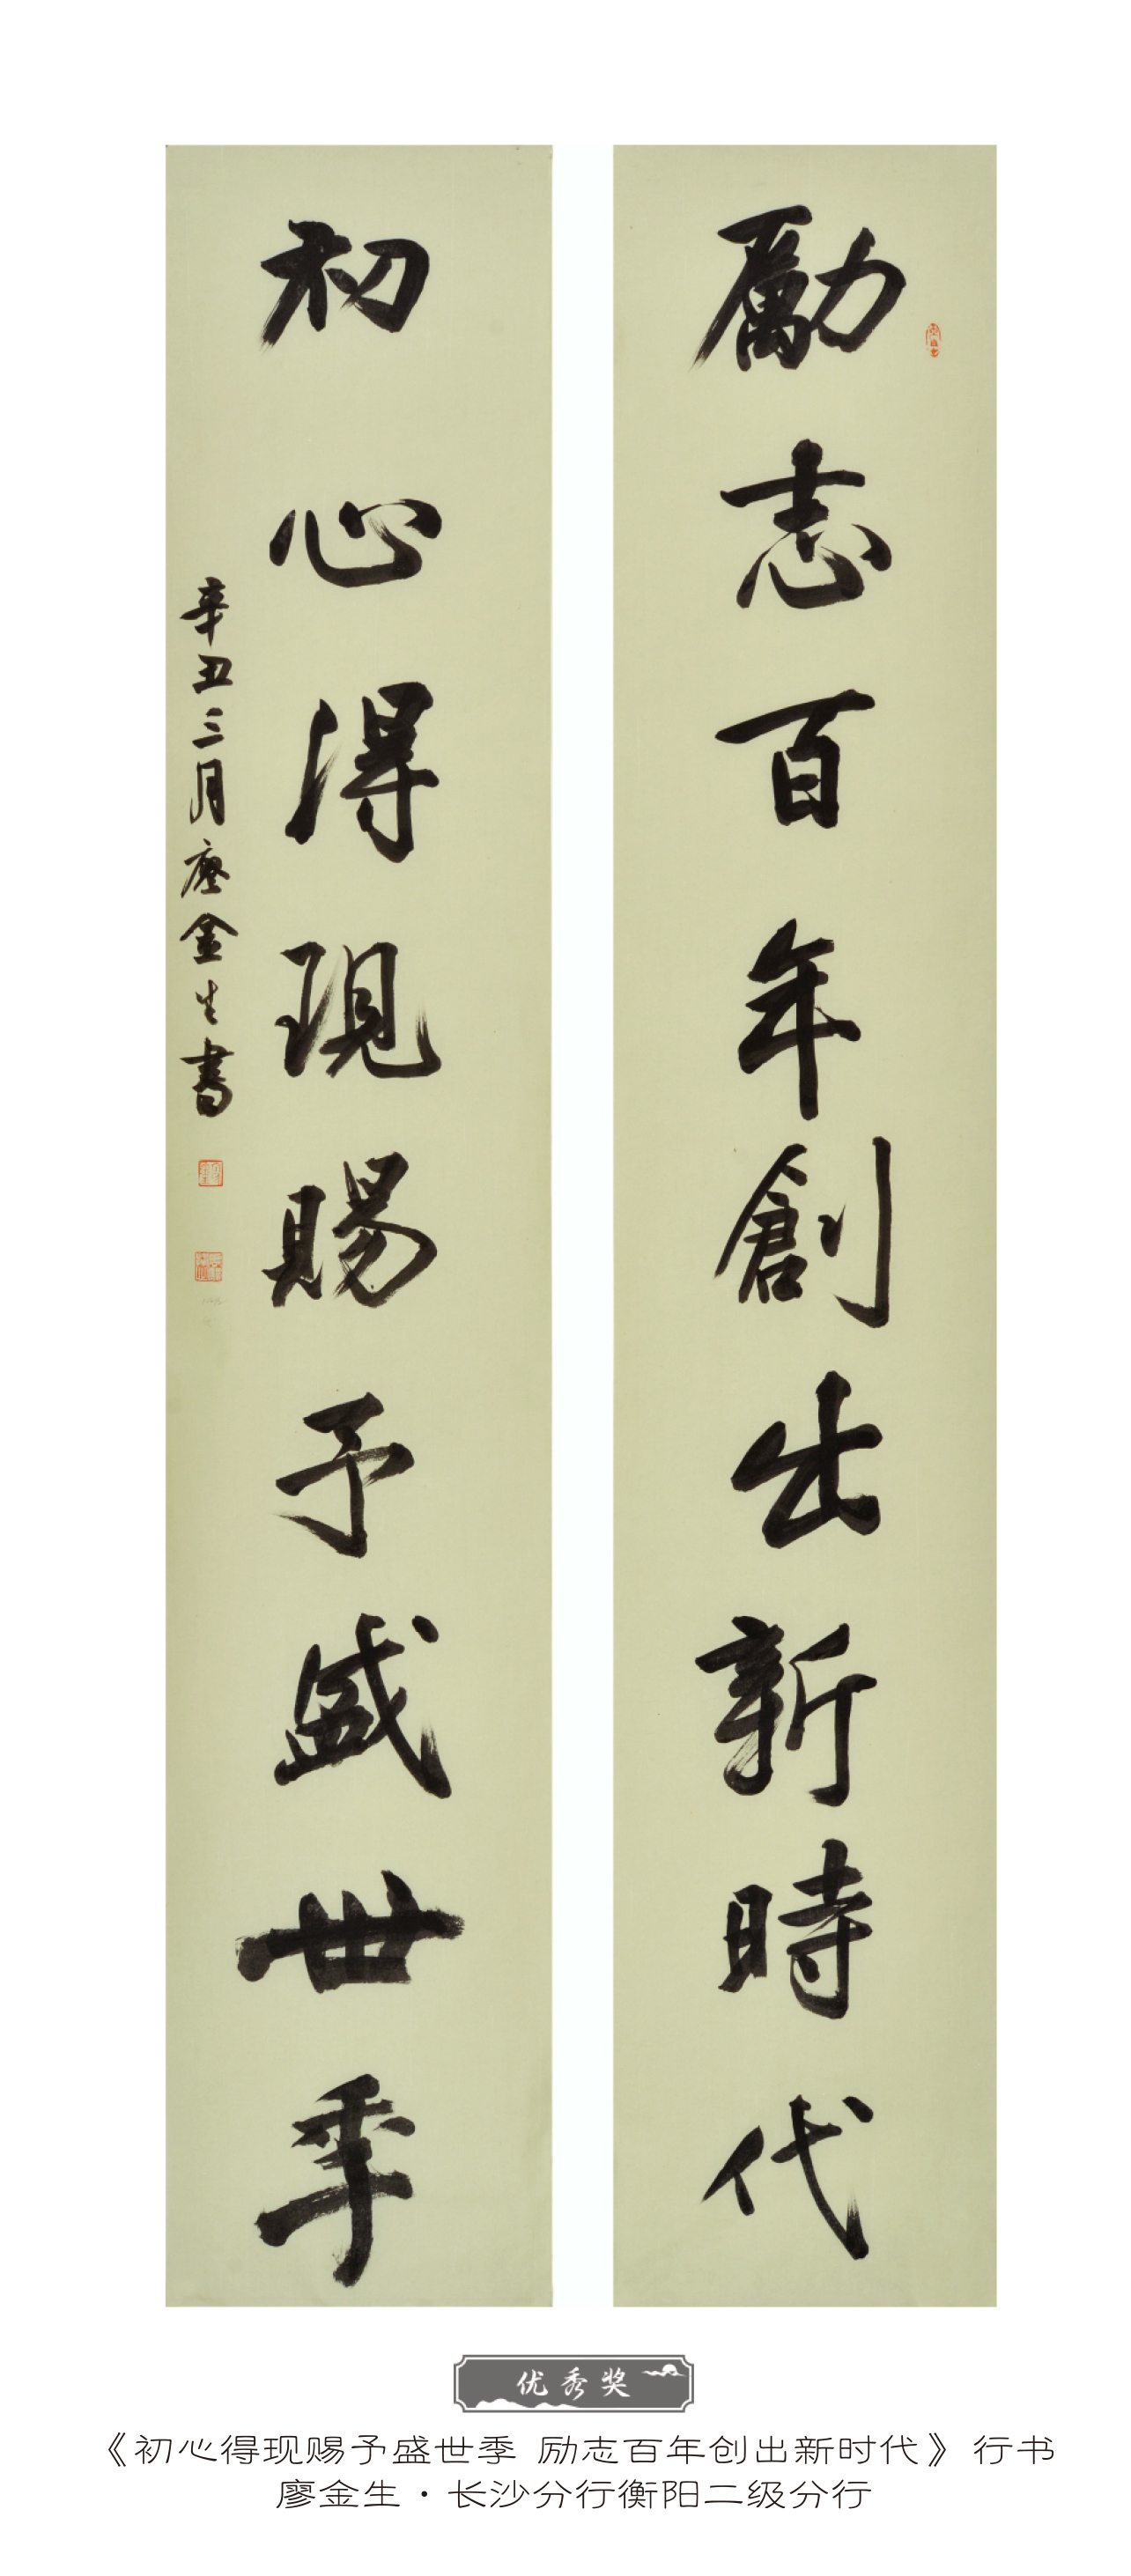 勵志百年創出新時代
初心得現賜予盛世季
辛丑三月廖金生書
优秀奖
《初心得现赐予盛世季 励志百年创出新时代》行书
廖金生·长沙分行衡阳二级分行